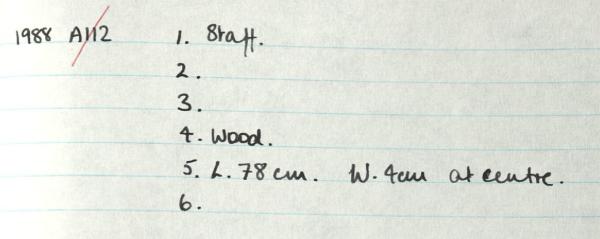 1988 A112 1. Staff.
2.
3.
4. Wood.
5. L. 78 cm. W. 4cm at centre.
6.